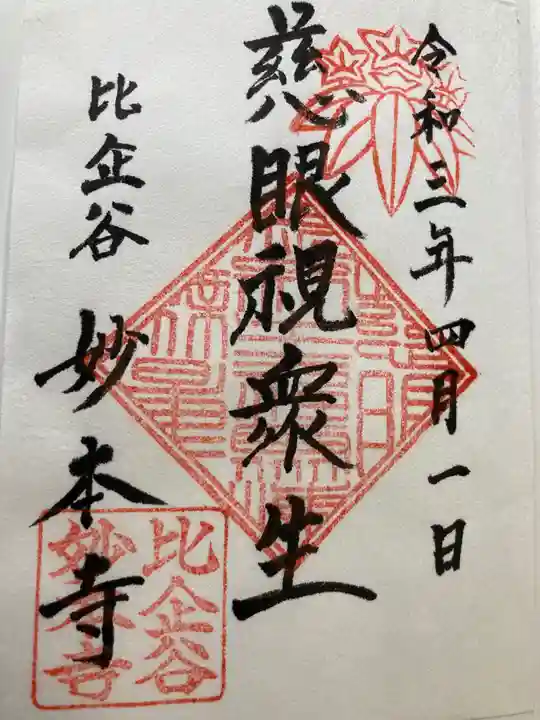 令和三年四月一日
慈眼視衆生
比企谷 妙本寺
比企谷
妙本寺